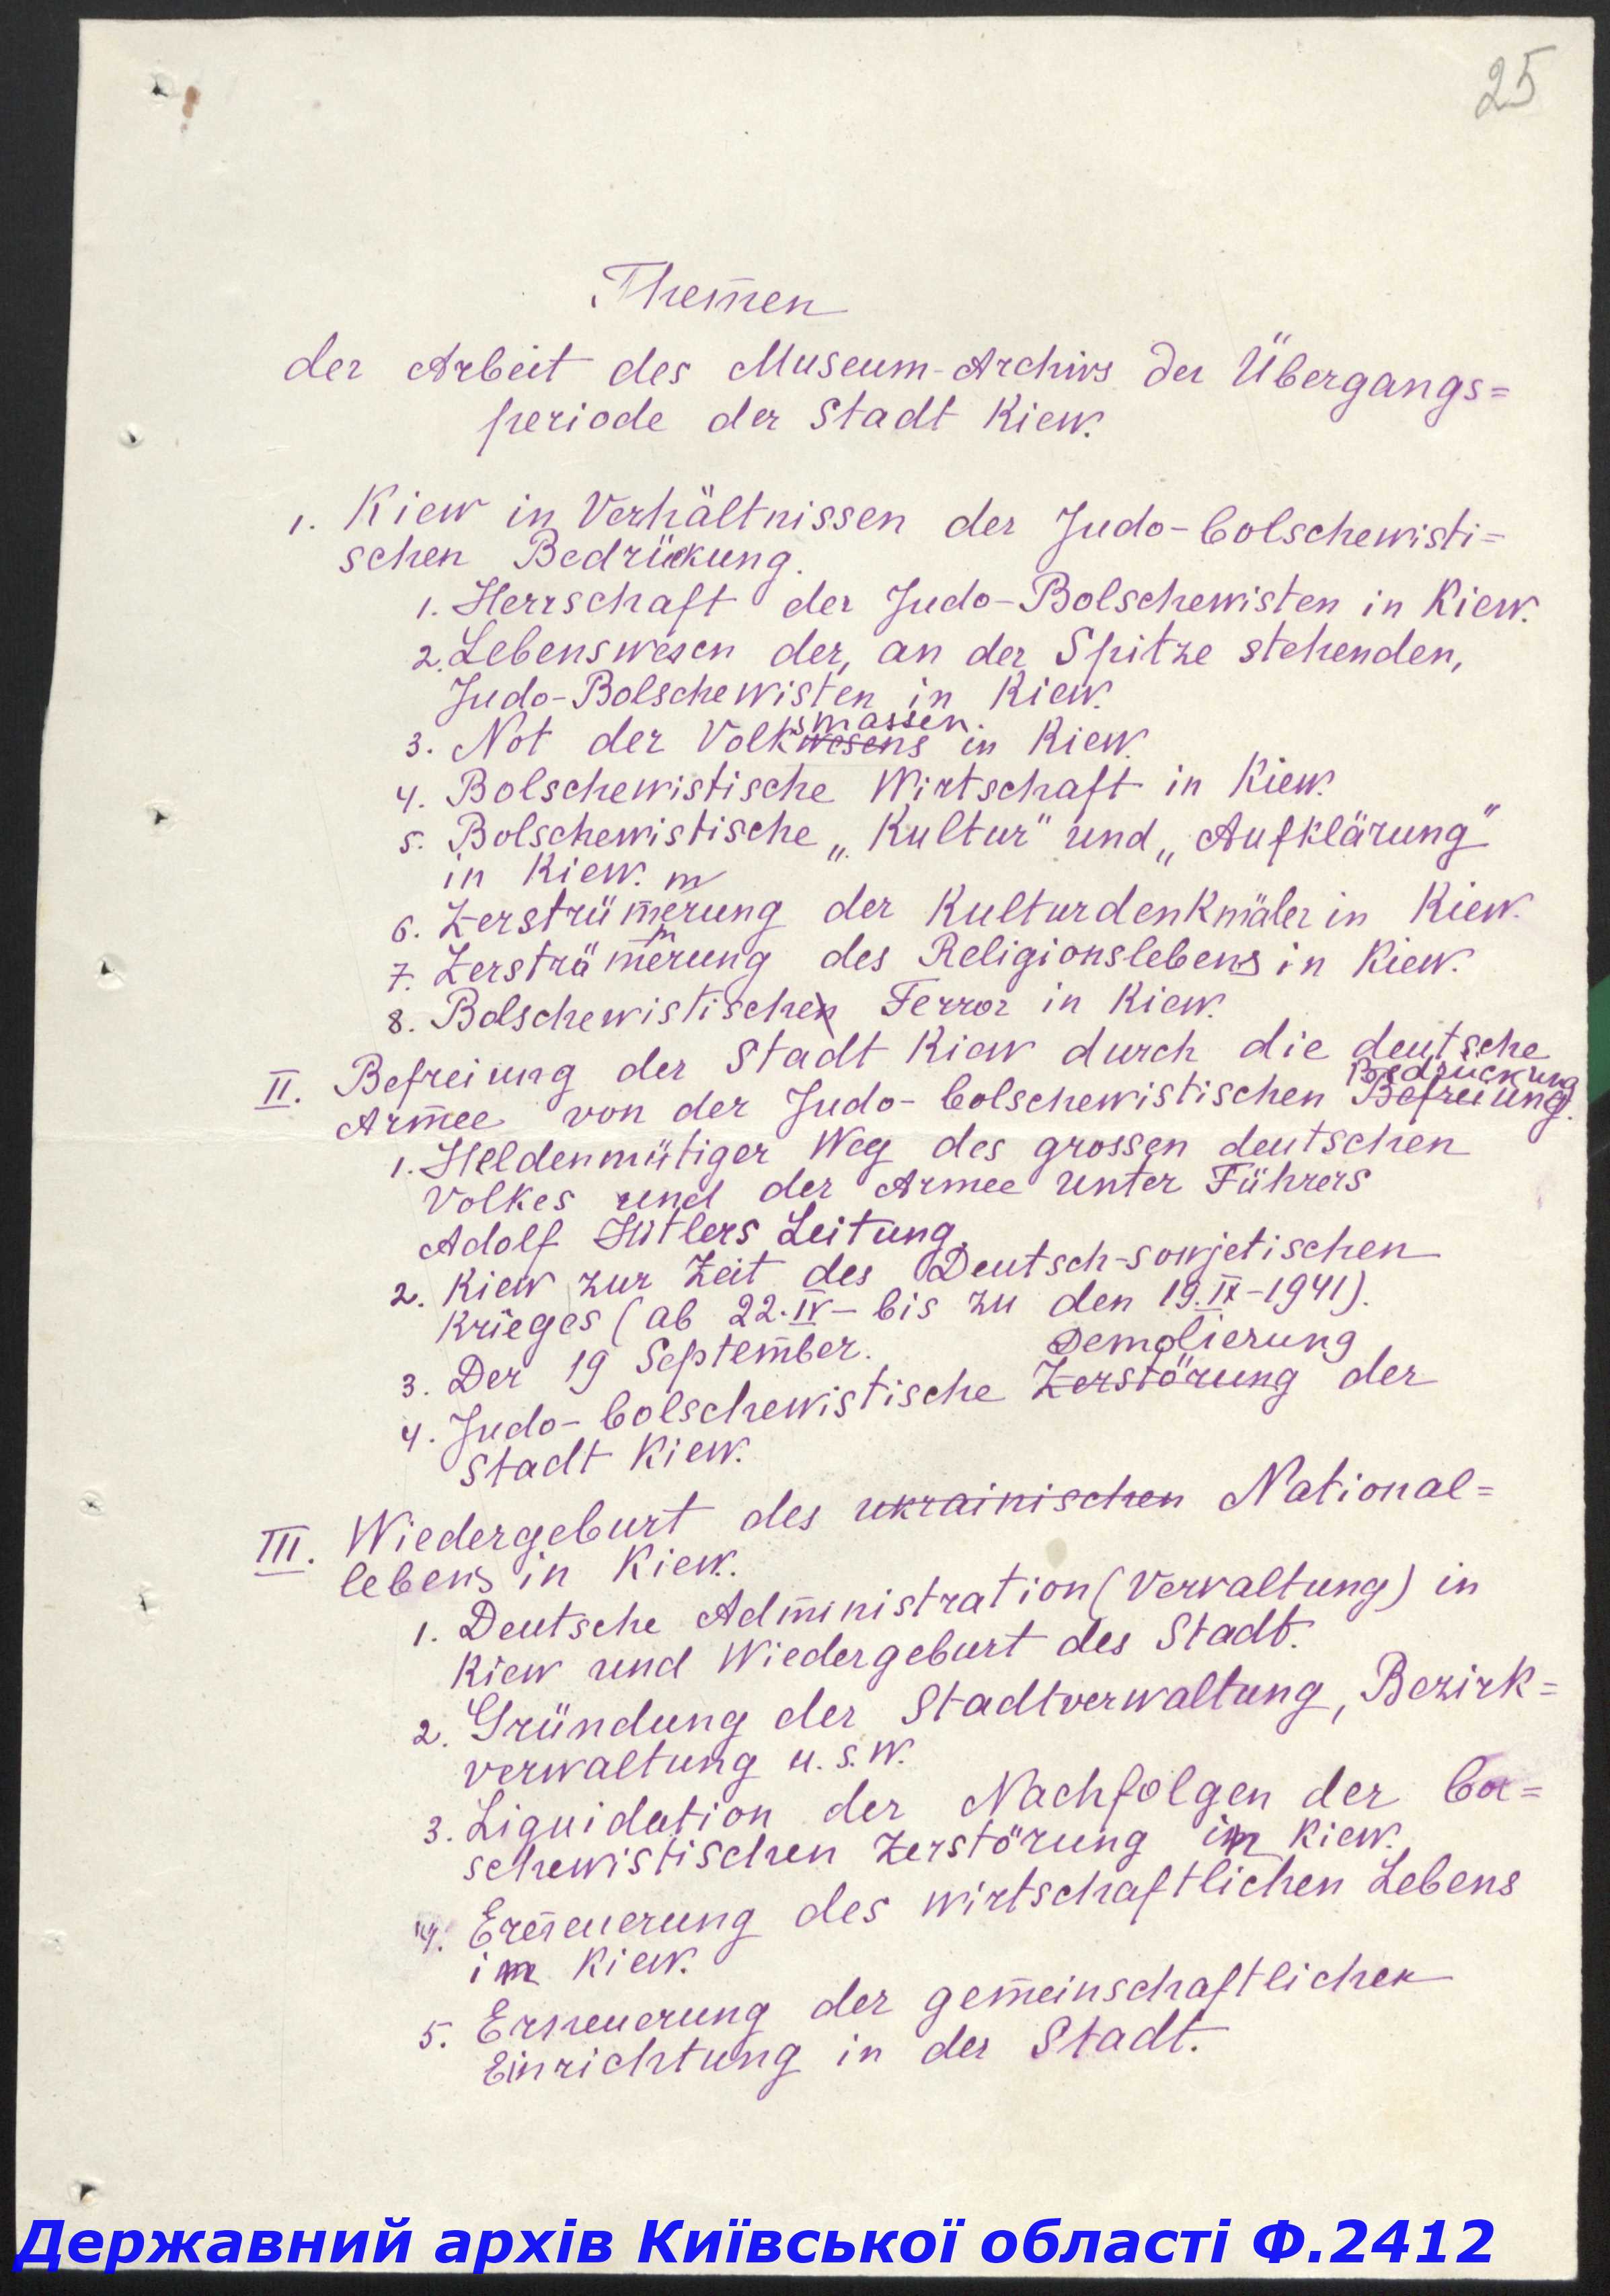 25
Themen
der Arbeit des Museum-Archivs der Übergangs=
periode der Stadt Kiew.
1. Kiew in Verhältnissen der Judo-bolschewisti=
schen Bedrückung.
1. Herrschaft der Judo-Bolschewisten in Kiew.
2. Lebenswesen der, an der Spitze stehenden,
Judo-Bolschewisten in Kiew.
smassen.
3. Not der Volkwesens in Kiew.
4. Bolschewistische Wirtschaft in Kiew.
5. Bolschewistische „Kultur" und „Aufklärung"
in Kiew.
6. Zerstrüm̅erung der Kulturdenkmäler in Kiew.
7. Zersträm̅erung des Religionslebens in Kiew.
8. Bolschewistischen Terror in Kiew.
II. Befreiung der Stadt Kiew durch die deutsche
Bedrückung
Armee von der Judo-bolschewistischen Befreiung.
1. Heldenmütiger Weg des grossen deutschen
Volkes und der Armee unter Führers
Adolf Hitlers Leitung.
2. Kiew zur Zeit des Deutsch-sowjetischen
Krieges (ab 22.IV – bis zu den 19.IX-1941).
3. Der 19 September.
Demolierung
4. Judo-bolschewistische Zerstörung der
Stadt Kiew.
III. Wiedergeburt des ukrainischen National=
lebens in Kiew.
1. Deutsche Administration (Verwaltung) in
Kiew und Wiedergeburt des Stadt.
2. Gründung der Stadtverwaltung, Bezirk=
verwaltung u.s.w.
3. Liquidation der Nachfolgen der bol=
schewistischen Zerstörung in Kiew.
4. Erneuerung des wirtschaftlichen Lebens
im Kiew.
5. Erneuerung der gemeinschaftlichen
Einrichtung in der Stadt.
Державний архів Київської області Ф.2412